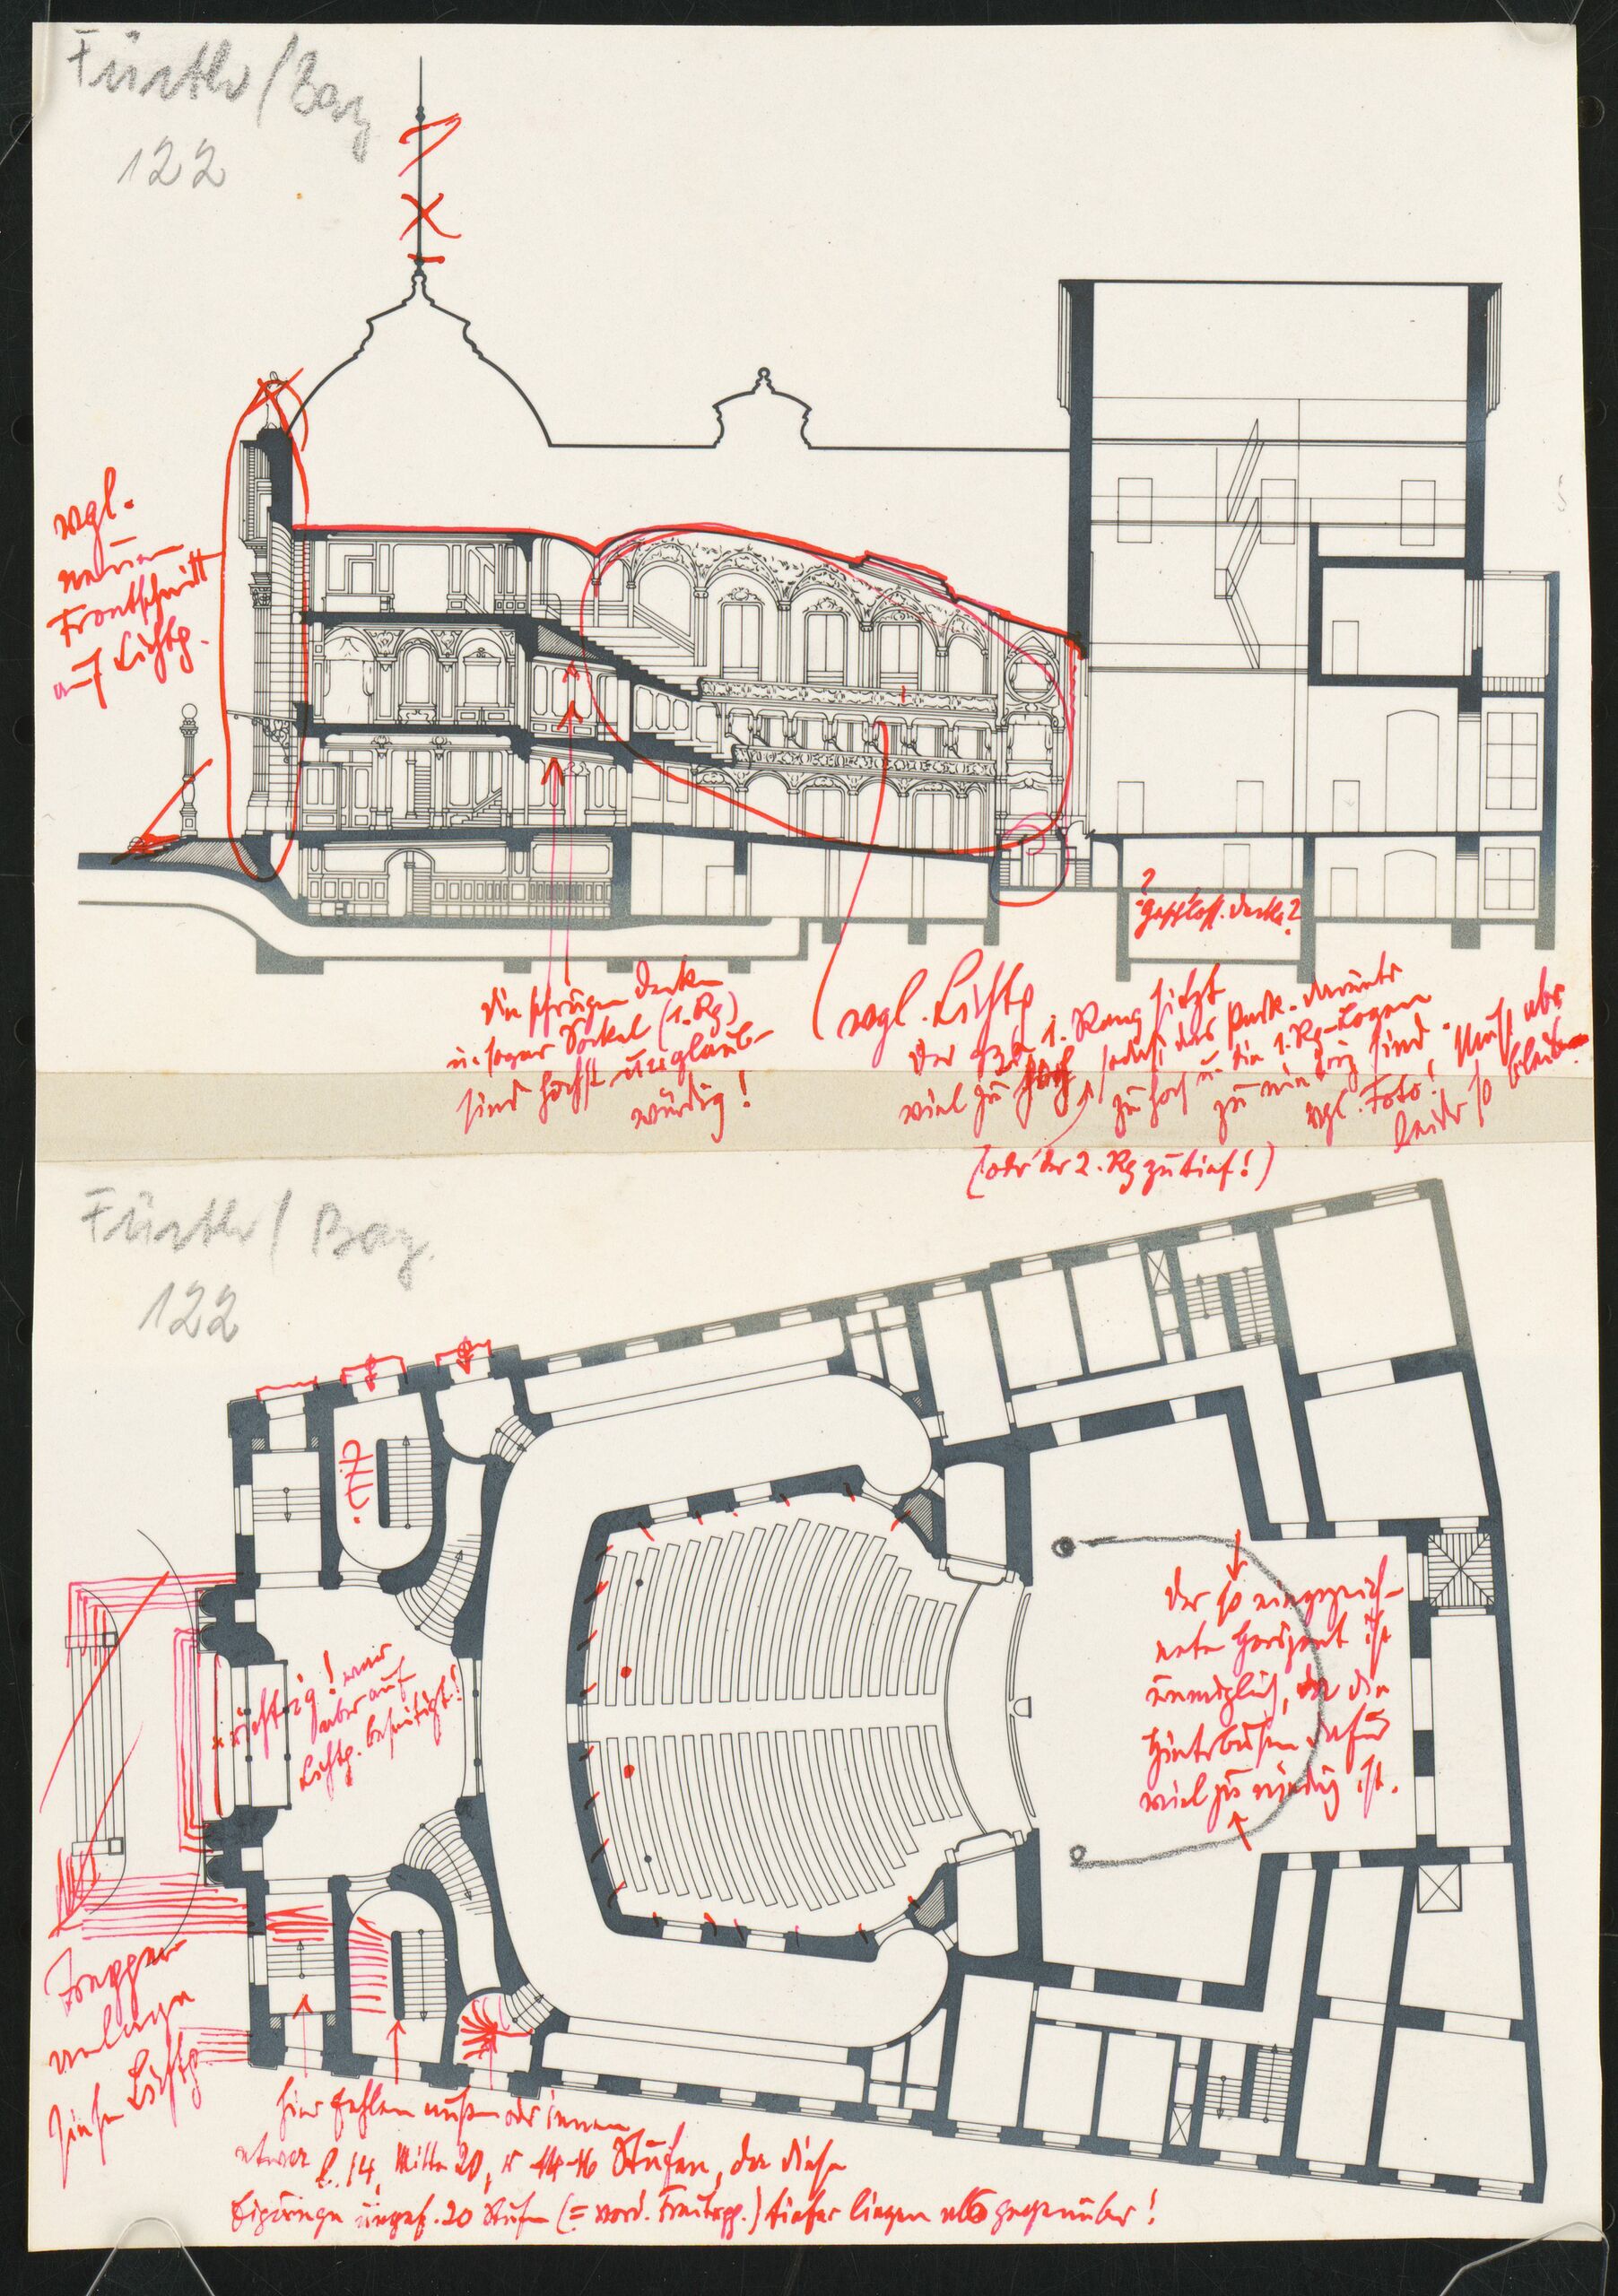 Fürth/Bay
122
vgl.
neuen
Frontschnitt
auf Lichtp.
?
geschloss. Decke?
die schrägen Decken
u. sogar Sockel (1. Rg)
sind höchst unglaub-
würdig!
vgl. Lichtp
Der 1. Rang sitzt
viel zu hoch, sodaß das Park. darunter
zu hoch u. die 1. Rg-Logen
zu niedrig sind.
vgl. Foto! Muß aber
leider so bleiben
(oder der 2. Rg zu tief!)
Fürth/Bay.
122
richtig! war
aber auf
Lichtp. beseitigt!
Der so eingezeich-
nete Horizont ist
unmöglich, da die
Hinterbühne dafür
viel zu niedrig ist.
Treppen-
anlage
siehe Lichtp
hier fehlen außen oder innen
etwa l. 14, Mitte 20, r 14-16 Stufen, da diese
Eingänge ungef. 20 Stufen (= vord. Freitrepp.) tiefer liegen als gegenüber!